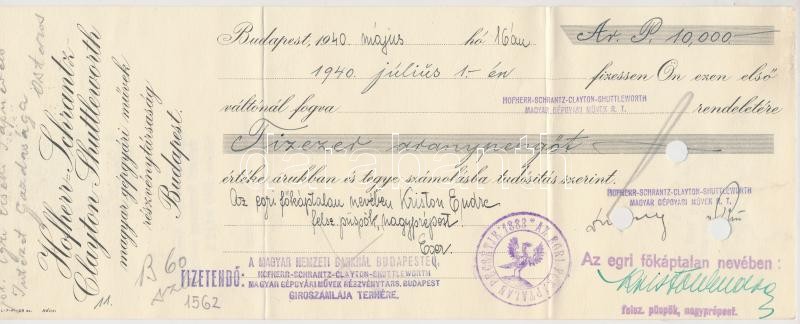 Hofherr-Schrantz-
Clayton-Shuttleworth
magyar gépgyári művek
részvénytársaság
Budapest.
11.
Budapest, 1940. május hó 16án Ar. P. 10,000.-
1940. július 1.-én fizessen Ön ezen első
váltónál fogva HOFHERR-SCHRANTZ-CLAYTON-SHUTTLEWORTH rendeletére
MAGYAR GÉPGYÁRI MŰVEK R. T.
Tízezer aranypengőt
értéke árukban és tegye számolásba tudósítás szerint.
Az egri főkáptalan nevében Kriston Endre
felsz. püspök, nagyprépost
Eger
HOFHERR-SCHRANTZ-CLAYTON-SHUTTLEWORTH
MAGYAR GÉPGYÁRI MŰVEK R. T.
60
FIZETENDŐ:
1562
A MAGYAR NEMZETI BANKNÁL BUDAPESTEN,
HOFHERR-SCHRANTZ-CLAYTON-SHUTTLEWORTH
MAGYAR GÉPGYÁRI MŰVEK RÉSZVÉNYTÁRS. BUDAPEST
GIROSZÁMLÁJA TERHÉRE.
AZ EGRI FŐKÁPTALAN PECSÉTJE 1883
Az egri főkáptalan nevében:
Kriston Endre
felsz. püspök, nagyprépost.
www.darabanth.com